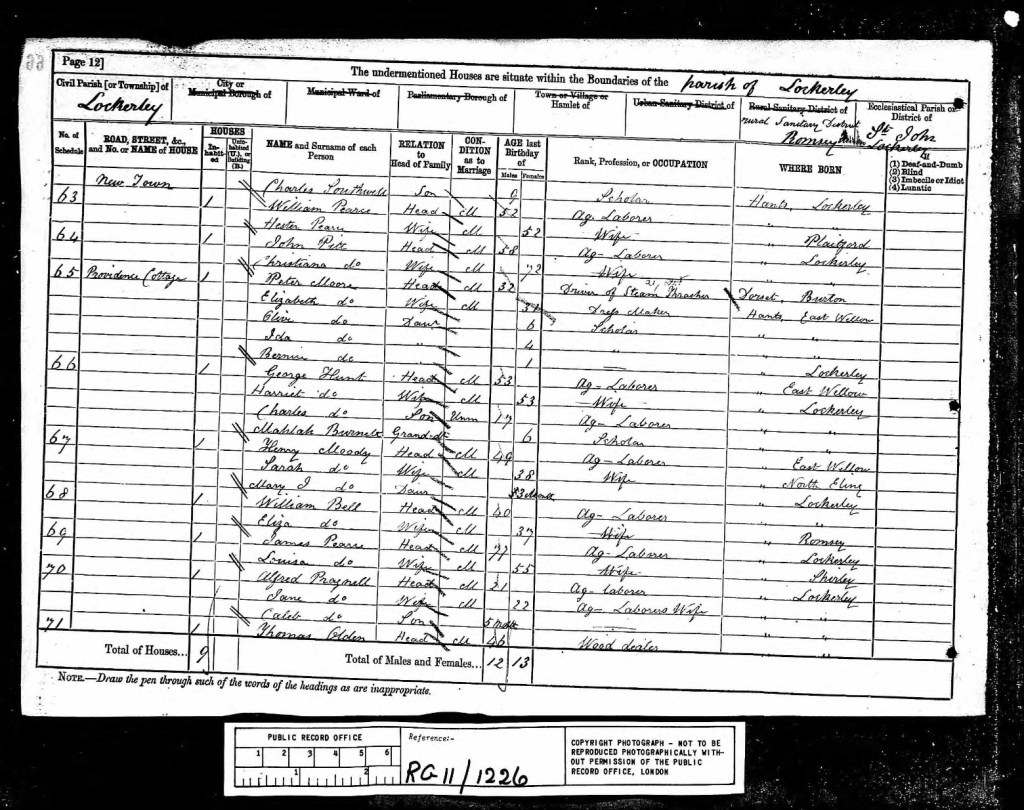 Page 12]
The undermentioned Houses are situate within the Boundaries of the parish of Lockerley
Civil Parish [or Township] of Lockerley
City or Municipal Borough of
Municipal Ward of
Parliamentary Borough of
Town or Village or Hamlet of
Urban Sanitary District of
Rural Sanitary District of rural Sanitary District Romsey
Ecclesiastical Parish or District of St John Lockerley
No. of Schedule
ROAD, STREET, &c., and No. or NAME of HOUSE
HOUSES
In-habit-ed
Unin-habited (U.), or Building (B.)
NAME and Surname of each Person
RELATION to Head of Family
CON-DITION as to Marriage
AGE last Birthday of
Males Females
Rank, Profession, or OCCUPATION
WHERE BORN
If
(1) Deaf-and-Dumb
(2) Blind
(3) Imbecile or Idiot
(4) Lunatic
New Town Charles Southwell Son 9 Scholar Hants, Lockerley
63 1 William Pearce Head M 52 Ag-Laborer " "
Hester Pearce Wife M 52 Wife " Plaitford
64 1 John Pitt Head M 58 Ag-Laborer " Lockerley
Christiana do Wife M 72 Wife " "
65 Providence Cottage 1 Peter Moore Head M 32 Driver of Steam Thrasher Dorset, Burton
Elizabeth do Wife M Dress Maker Hants, East Wellow
Olive do Daur 6 Scholar " "
Ida do " 4 " " "
do " 1 " Lockerley
66 1 George Hunt Head M 53 Ag-Laborer " East Wellow
Harriet do Wife M 53 Wife " Lockerley
Charles do Son Unm 17 Ag-Laborer " "
Mahlah Grand-dr 6 Scholar " "
67 1 Henry Moody Head M 49 Ag-Laborer " East Wellow
Sarah do Wife M 38 Wife " North Eling
Mary J do Daur 3 Month " Lockerley
68 1 William Bell Head M 40 Ag-Laborer " "
Eliza do Wife M 37 Wife " Romsey
69 1 James Pearce Head M 77 Ag-Laborer " Lockerley
Louisa do Wife M 55 Wife " Shirley
70 1 Alfred Pragnell Head M 21 Ag-laborer " Lockerley
Jane do Wife M 22 Ag-Laborers Wife " "
Caleb do Son 5 Moth " "
71 1 Thomas Olden Head M 46 Wood dealer " "
Total of Houses... 9
Total of Males and Females... 12 13
NOTE.—Draw the pen through such of the words of the headings as are inappropriate.
PUBLIC RECORD OFFICE
1 2 3 4 5 6
1 2
Reference:-
RG 11/1226
COPYRIGHT PHOTOGRAPH - NOT TO BE
REPRODUCED PHOTOGRAPHICALLY WITH-
OUT PERMISSION OF THE PUBLIC
RECORD OFFICE, LONDON